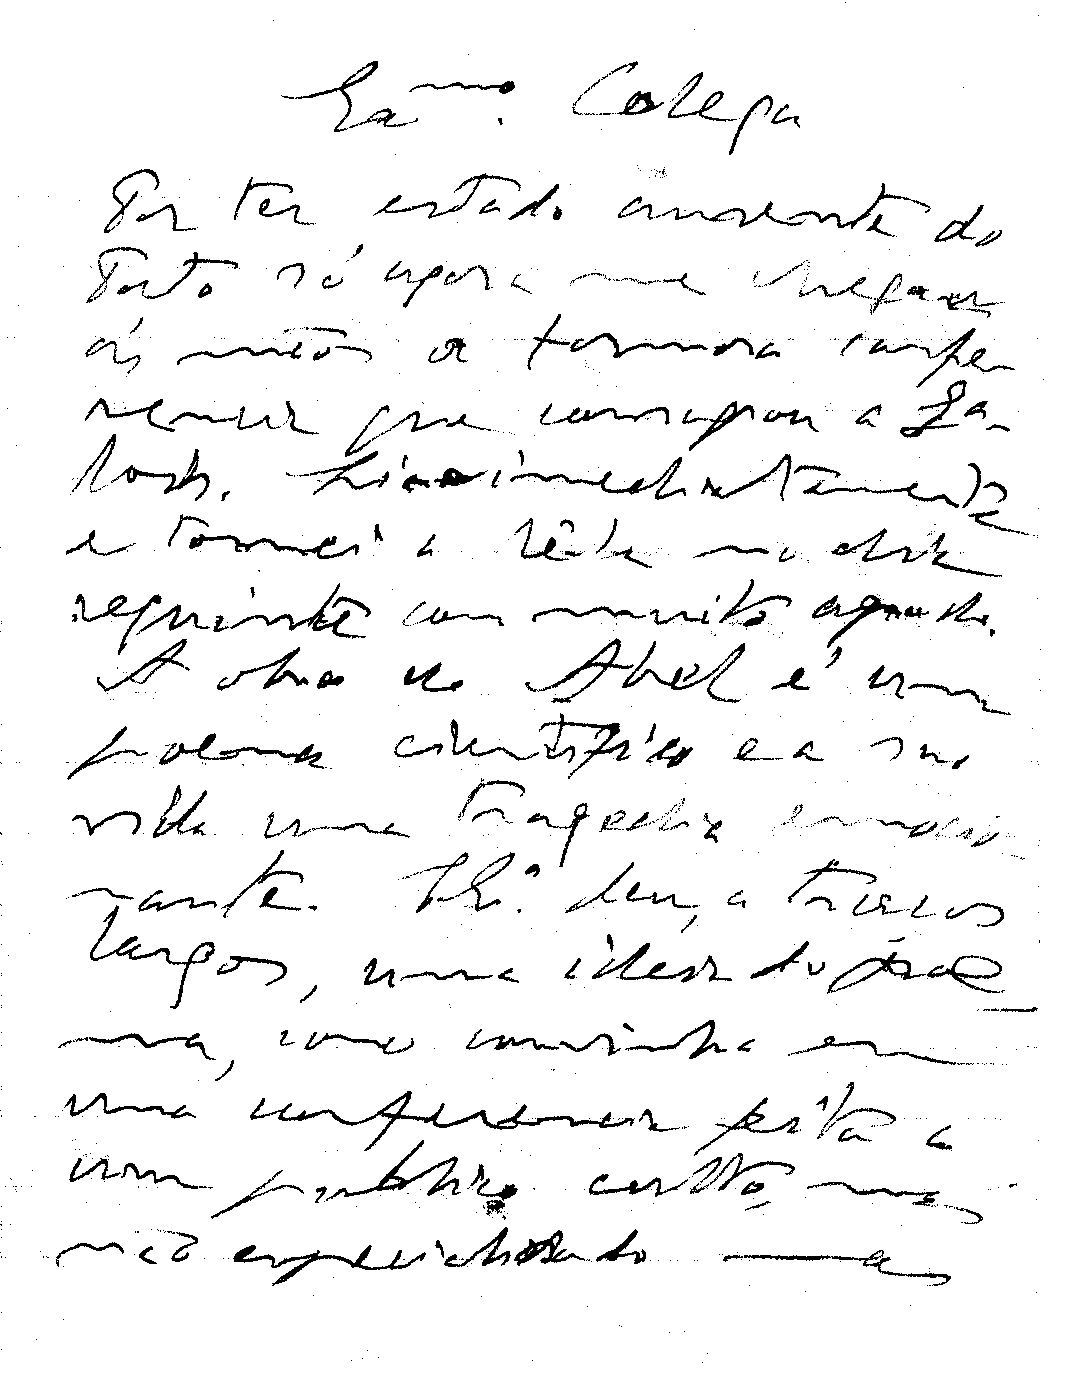 Ex.mo Colega
Por ter estado ausente do
Porto só agora me chegou
ás mãos a formosa confe
rencia que consagrou a Ga-
lois. Li-a immediatamente
e tornei a lê-la no dia
seguinte com muito agrado.
A obra de Abel é um
poema cientifico e a sua
vida uma tragedia emocio
nante. V. Ex.ª deu, a traços
largos, uma ideia do poe
ma, como convinha em
uma conferencia feita a
um publico culto, mas
não especialisado — as